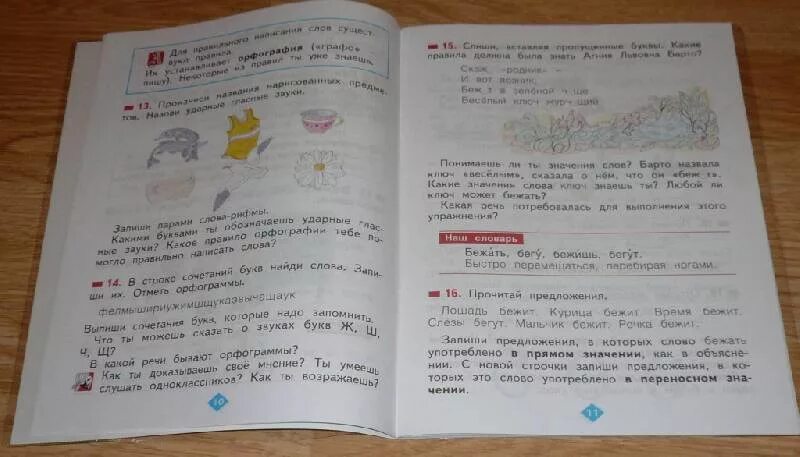 Для правильного написания слов сущест-
вуют правила.
Их устанавливает орфография («графо»
пишу). Некоторые из правил ты уже знаешь.
13. Произнеси названия нарисованных предме-
тов. Назови ударные гласные звуки.
Запиши парами слова-рифмы.
Какими буквами ты обозначаешь ударные глас-
ные звуки? Какое правило орфографии тебе по-
могло правильно написать слова?
14. В строке сочетаний букв найди слова. Запи-
ши их. Отметь орфограммы.
Выпиши сочетания букв, которые надо запомнить.
Что ты можешь сказать о звуках букв Ж, Ш,
Ч, Щ?
В какой речи бывают орфограммы?
Как ты доказываешь своё мнение? Ты умеешь
слушать одноклассников? Как ты возражаешь?
10
15. Спиши, вставляя пропущенные буквы. Какие
правила должна была знать Агния Львовна Барто?
Скаж.. «родник» –
И вот возник,
Беж..т в зелёной чаще
Весёлый ключ журчащий
Понимаешь ли ты значения слов? Барто назвала
ключ «весёлым», сказала о нём, что он «беж..т».
Какие значения слова ключ знаешь ты? Любой ли
ключ может бежать?
Какая речь потребовалась для выполнения этого
упражнения?
Наш словарь
Бежа́ть, бегу́, бежи́шь, бегу́т.
Быстро перемещаться, перебирая ногами.
16. Прочитай предложения.
Лошадь бежит. Курица бежит. Время бежит.
Слёзы бегут. Мальчик бежит. Речка бежит.
Запиши предложения, в которых слово бежать
употреблено в прямом значении, как в объясне-
нии. С новой строчки запиши предложения, в ко-
торых это слово употреблено в переносном зна-
чении.
11